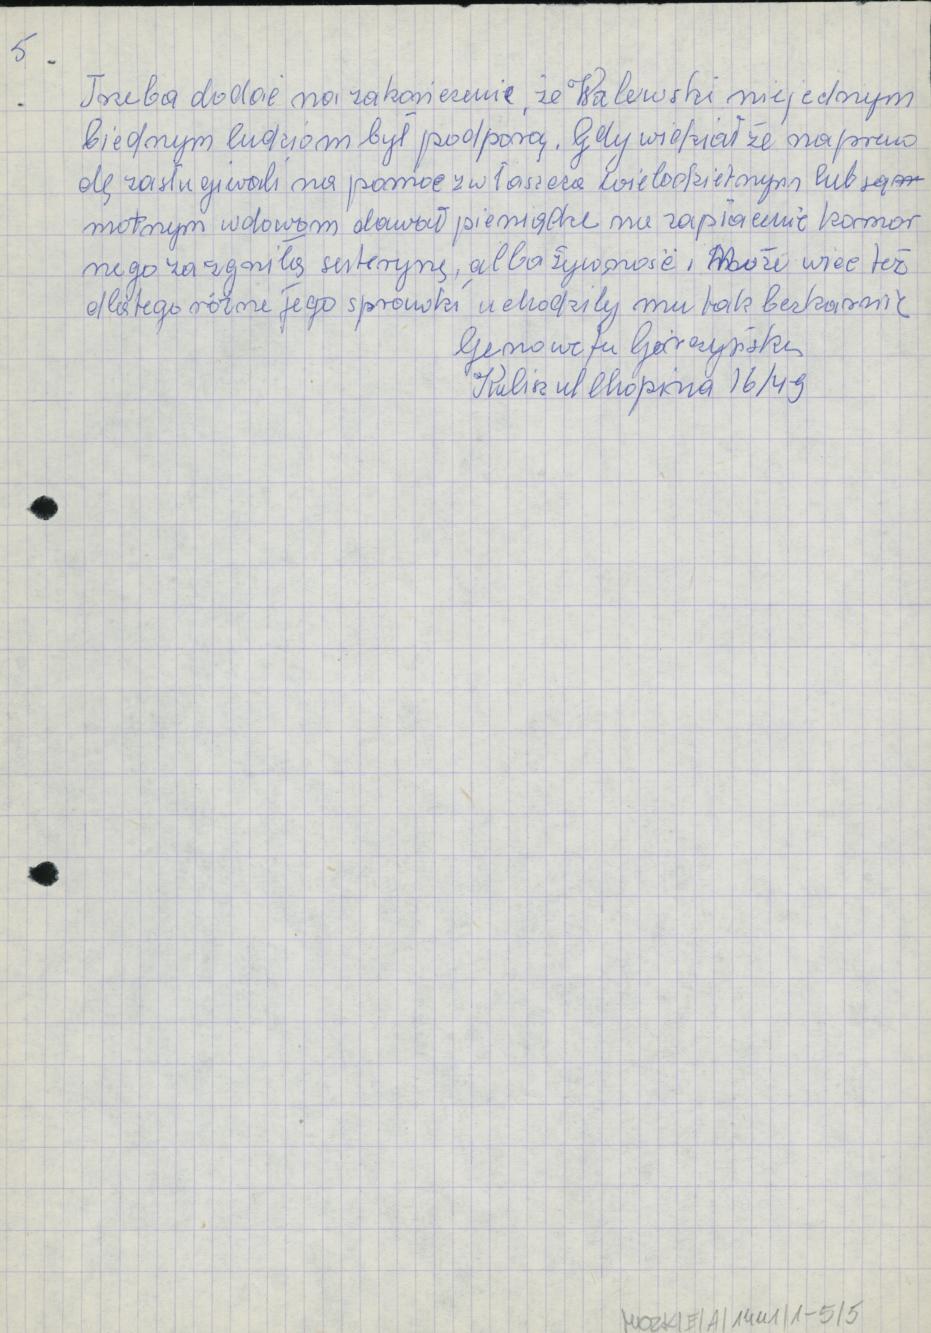 5.
Trzeba dodać na zakończenie, że Walewski niejednym
biednym ludziom był podporą. Gdy wiedział że napraw
dę zasługiwali na pomoc zwłaszcza wielodzietnym lub sa
motnym wdowom dawał pieniądze na zapłacenie komor
nego za zgniłą suterynę, albo żywność, Może więc też
dlatego różne jego sprawki uchodziły mu tak bezkarnie
Genowefa Górczyńska
Kalisz ul Chopina 16/49
MOZK/E/A/1441/1-5/5